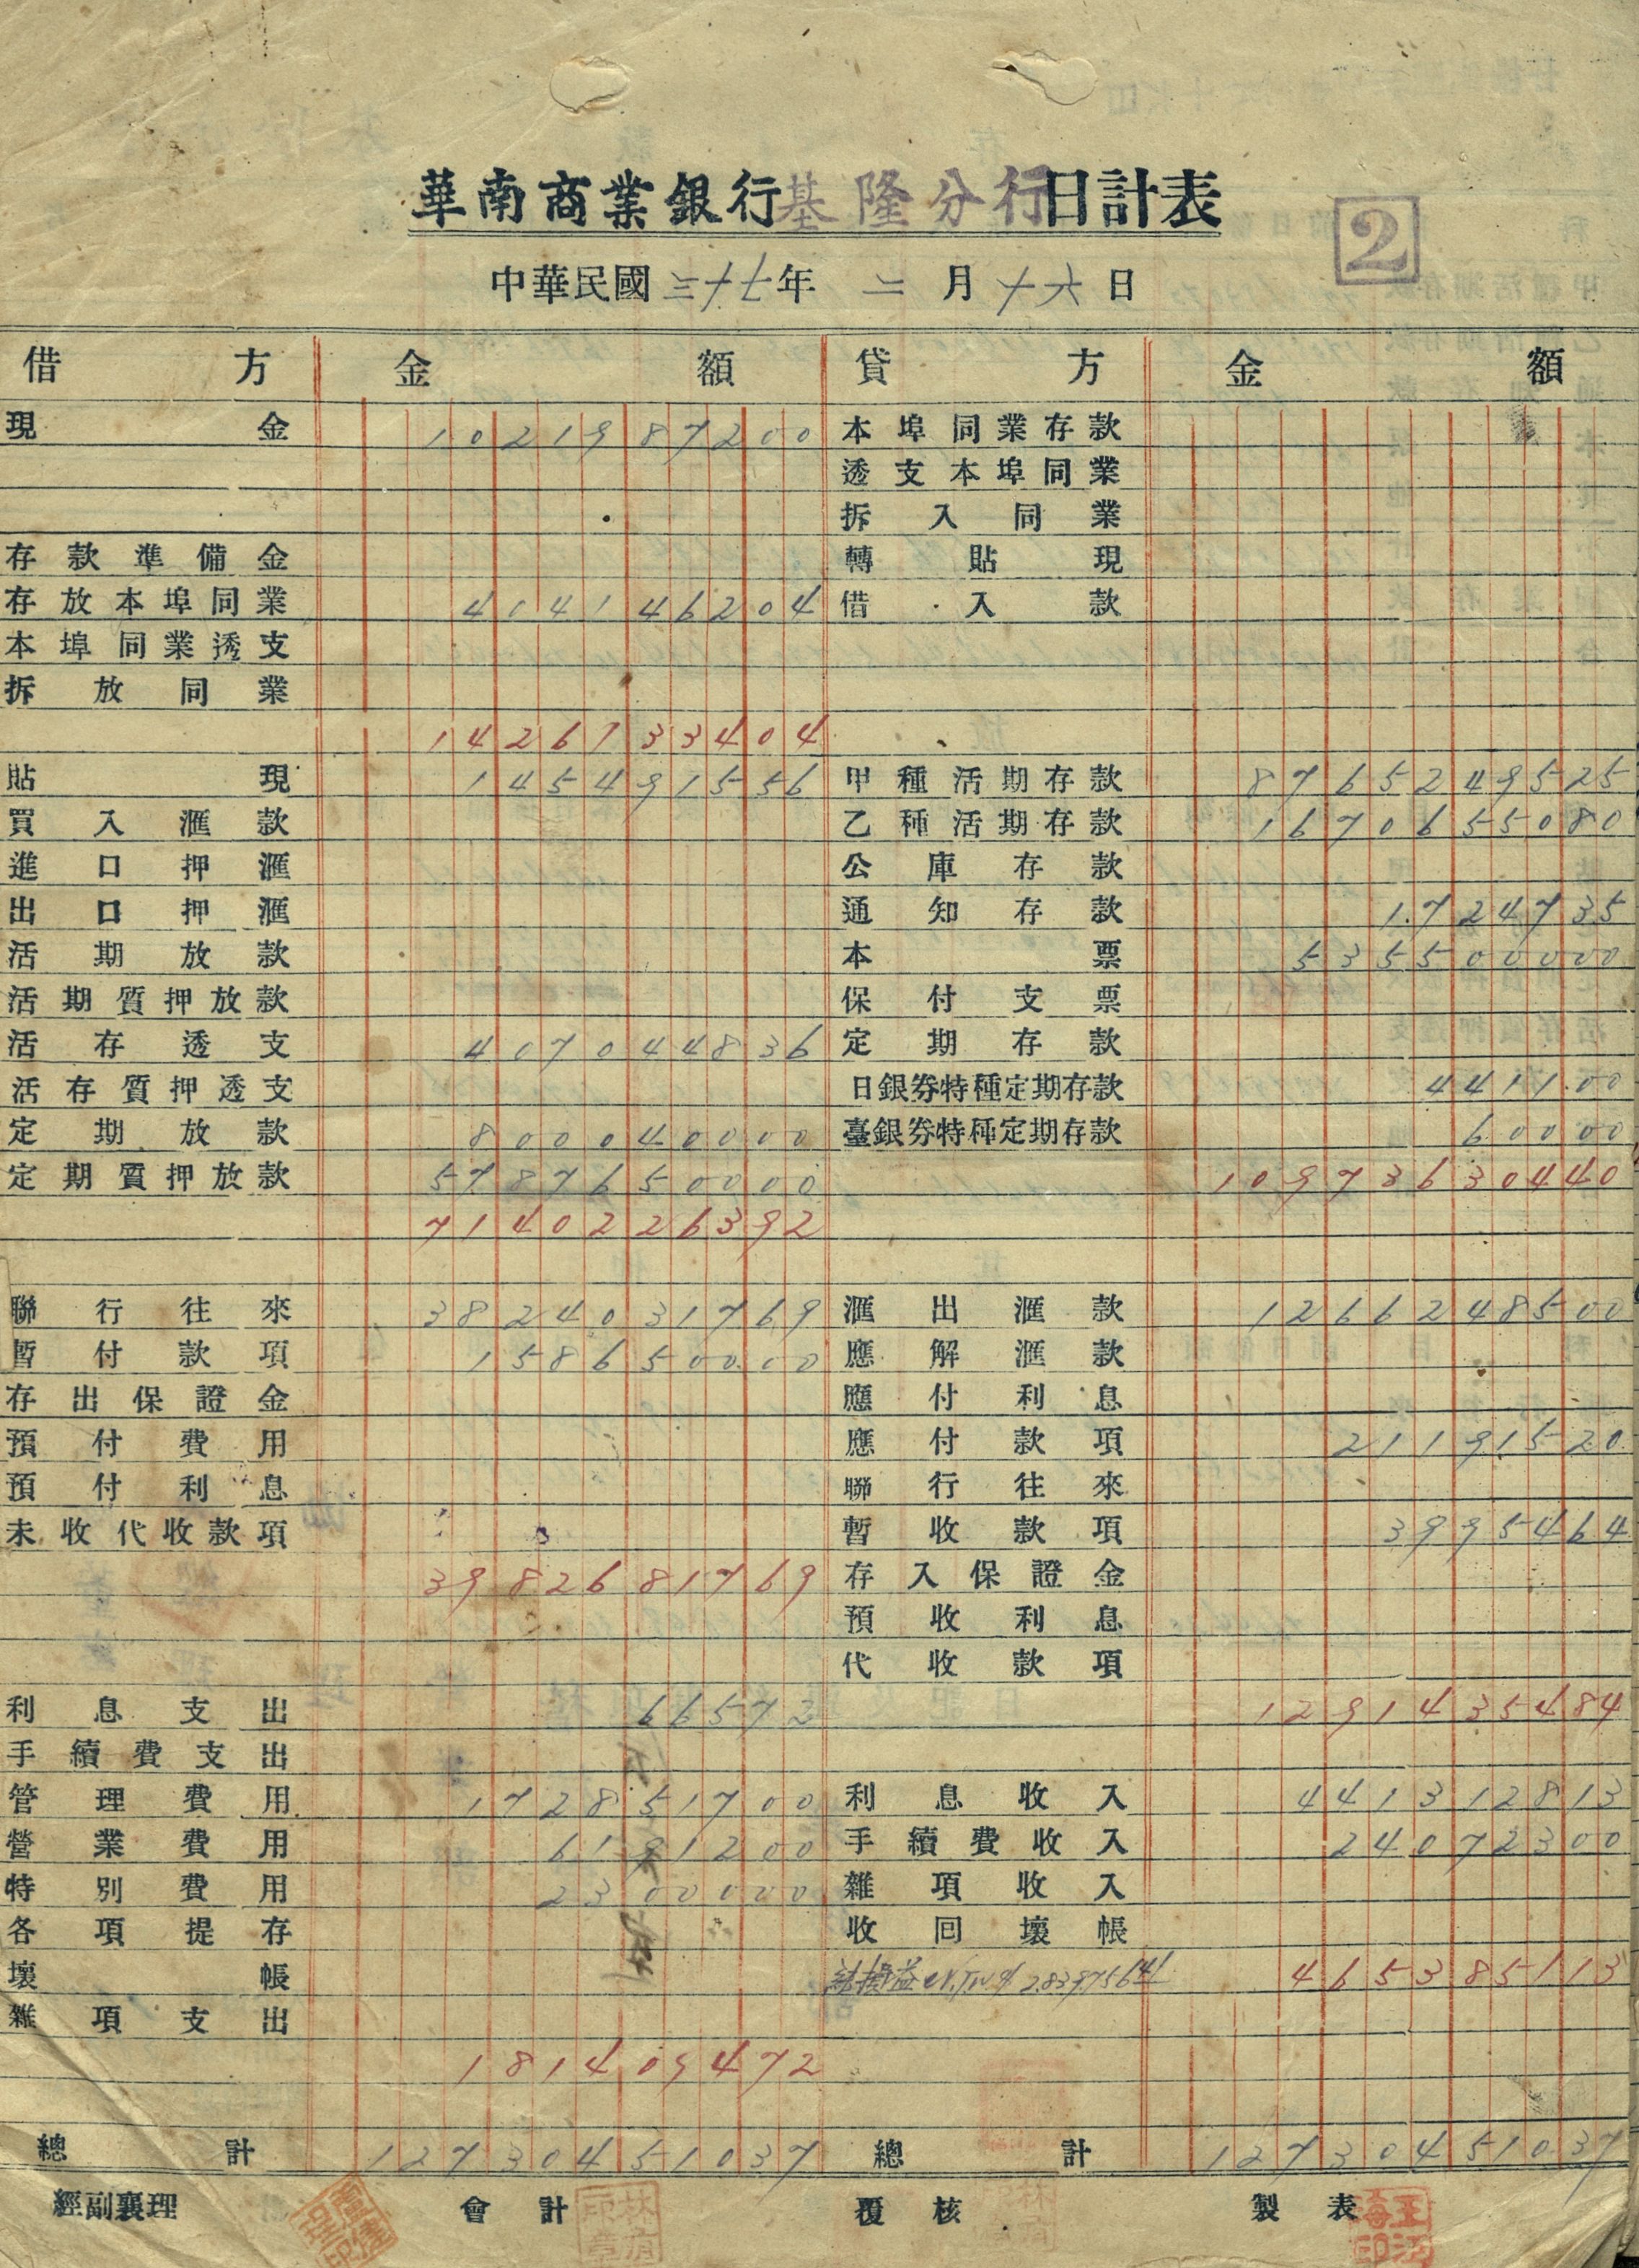 華南商業銀行基隆分行日計表
2
中華民國三十七年 二 月 十六 日
借方 金額 貸方 金額
現金 1021987200 本埠同業存款
透支本埠同業
拆入同業
存款準備金 轉貼現
存放本埠同業 404146204 借入款
本埠同業透支
拆放同業
1426133404
貼現 145491556 甲種活期存款 8765249525
買入滙款 乙種活期存款 1670655080
進口押滙 公庫存款
出口押滙 通知存款 1724735
活期放款 本票 535500000
活期質押放款 保付支票
活存透支 407044836 定期存款
活存質押透支 日銀劵特種定期存款 441100
定期放款 800040000 臺銀劵特種定期存款 60000
定期質押放款 5787650000 10973630440
7140226392
聯行往來 3824031769 滙出滙款 1266248500
暫付款項 158650000 應解滙款
存出保證金 應付利息
預付費用 應付款項 21191520
預付利息 聯行往來
未收代收款項 暫收款項 3995464
3982681769 存入保證金
預收利息
代收款項
利息支出 66572 1291435484
手續費支出
管理費用 172851700 利息收入 441312813
營業費用 6191200 手續費收入 24072300
特別費用 2300000 雜項收入
各項提存 收回壞帳
壞帳 損益 465385113
雜項支出
181409472
總計 12730451037 總計 12730451037
經副襄理 會計 覆核 製表